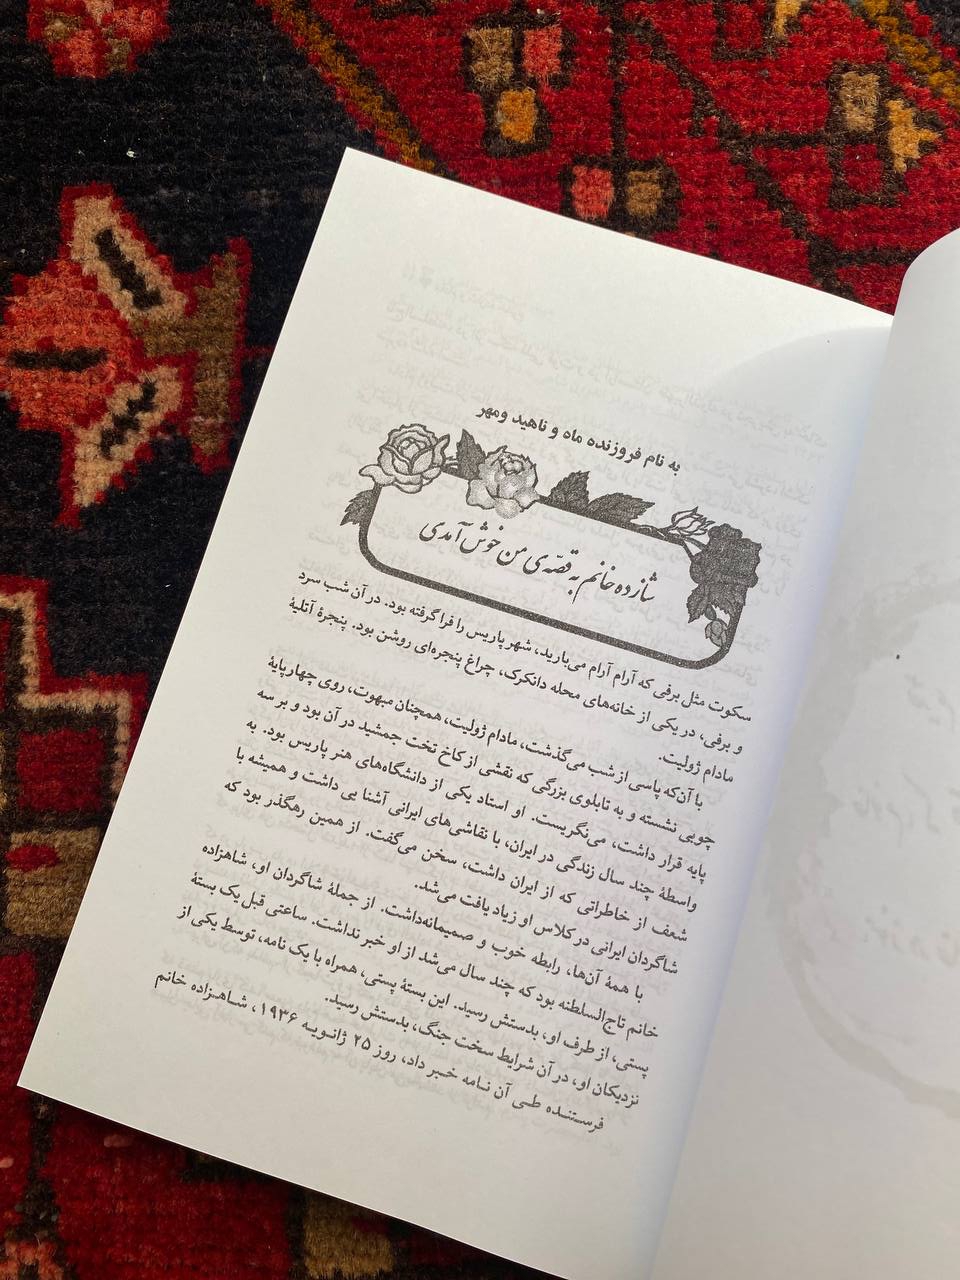 به نام فروزنده ماه و ناهید ومهر
شازده خانم به قصّه‌ی من خوش آمدی
سکوت مثل برفی که آرام آرام می‌بارید، شهر پاریس را فرا گرفته بود. در آن شب سرد
و برفی، در یکی از خانه‌های محله دانکرک، چراغ پنجره‌ای روشن بود. پنجرهٔ آتلیهٔ
مادام ژولیت.
با آن‌که پاسی از شب می‌گذشت، مادام ژولیت، همچنان مبهوت، روی چهارپایهٔ
چوبی نشسته و به تابلوی بزرگی که نقشی از کاخ تخت جمشید در آن بود و بر سه
پایه قرار داشت، می‌نگریست. او استاد یکی از دانشگاه‌های هنر پاریس بود. به
واسطهٔ چند سال زندگی در ایران، با نقاشی‌های ایرانی آشنا یی داشت و همیشه با
شعف از خاطراتی که از ایران داشت، سخن می‌گفت. از همین رهگذر بود که
شاگردان ایرانی در کلاس او زیاد یافت می‌شد.
با همهٔ آن‌ها، رابطه خوب و صمیمانه‌داشت. از جملهٔ شاگردان او، شاهزاده
خانم تاج‌السلطنه بود که چند سال می‌شد از او خبر نداشت. ساعتی قبل یک بستهٔ
پستی، از طرف او، بدستش رسید. این بستهٔ پستی، همراه با یک نامه، توسط یکی از
نزدیکان او، در آن شرایط سخت جنگ، بدستش رسید.
فرستنده طی آن نامه خبر داد، روز ۲۵ ژانویه ۱۹۳۶، شاهزاده خانم